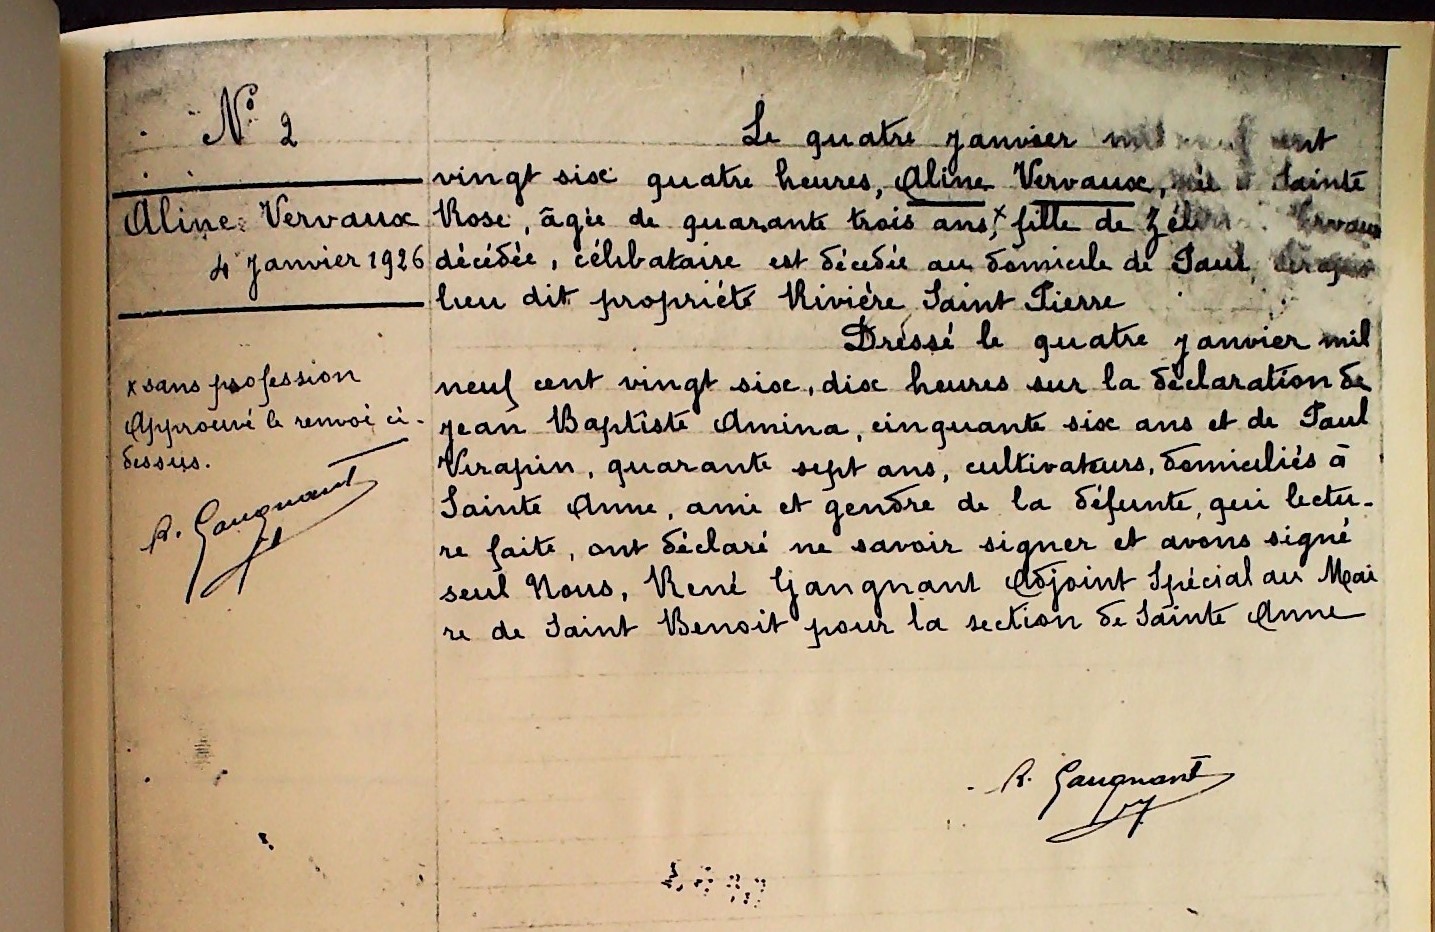 N° 2
Aline Vervaux
4 Janvier 1926
x sans profession
Approuvé le renvoi ci-
dessus.
R. Gangnant
Le quatre janvier mil neuf cent
vingt six quatre heures, Aline Vervaux, née à Sainte
Rose, âgée de quarante trois ans,x fille de Vervaux
décédée, célibataire est décédée au domicile de Paul
lieu dit propriété Rivière Saint Pierre
Dressé le quatre janvier mil
neuf cent vingt six, dix heures sur la déclaration de
Jean Baptiste Amina, cinquante six ans et de Paul
Virapin, quarante sept ans, cultivateurs, domiciliés à
Sainte Anne, ami et gendre de la défunte, qui lectu-
re faite, ont déclaré ne savoir signer et avons signé
seul Nous, René Gangnant Adjoint Spécial au Mai
re de Saint Benoit pour la section de Sainte Anne
R. Gangnant